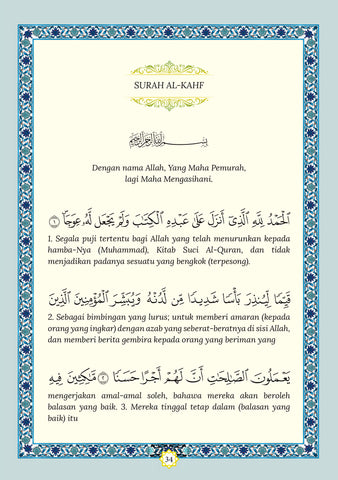 SURAH AL-KAHF
بِسْمِ اللَّهِ الرَّحْمَٰنِ الرَّحِيمِ
Dengan nama Allah, Yang Maha Pemurah,
lagi Maha Mengasihani.
ٱلْحَمْدُ لِلَّهِ ٱلَّذِىٓ أَنزَلَ عَلَىٰ عَبْدِهِ ٱلْكِتَـٰبَ وَلَمْ يَجْعَل لَّهُۥ عِوَجَا ۜ ١
1. Segala puji tertentu bagi Allah yang telah menurunkan kepada
hamba-Nya (Muhammad), Kitab Suci Al-Quran, dan tidak
menjadikan padanya sesuatu yang bengkok (terpesong).
قَيِّمًا لِّيُنذِرَ بَأْسًا شَدِيدًا مِّن لَّدُنْهُ وَيُبَشِّرَ ٱلْمُؤْمِنِينَ ٱلَّذِينَ
2. Sebagai bimbingan yang lurus; untuk memberi amaran (kepada
orang yang ingkar) dengan azab yang seberat-beratnya di sisi Allah,
dan memberi berita gembira kepada orang yang beriman yang
يَعْمَلُونَ ٱلصَّـٰلِحَـٰتِ أَنَّ لَهُمْ أَجْرًا حَسَنًا ٢ مَّـٰكِثِينَ فِيهِ
mengerjakan amal-amal soleh, bahawa mereka akan beroleh
balasan yang baik. 3. Mereka tinggal tetap dalam (balasan yang
baik) itu
34